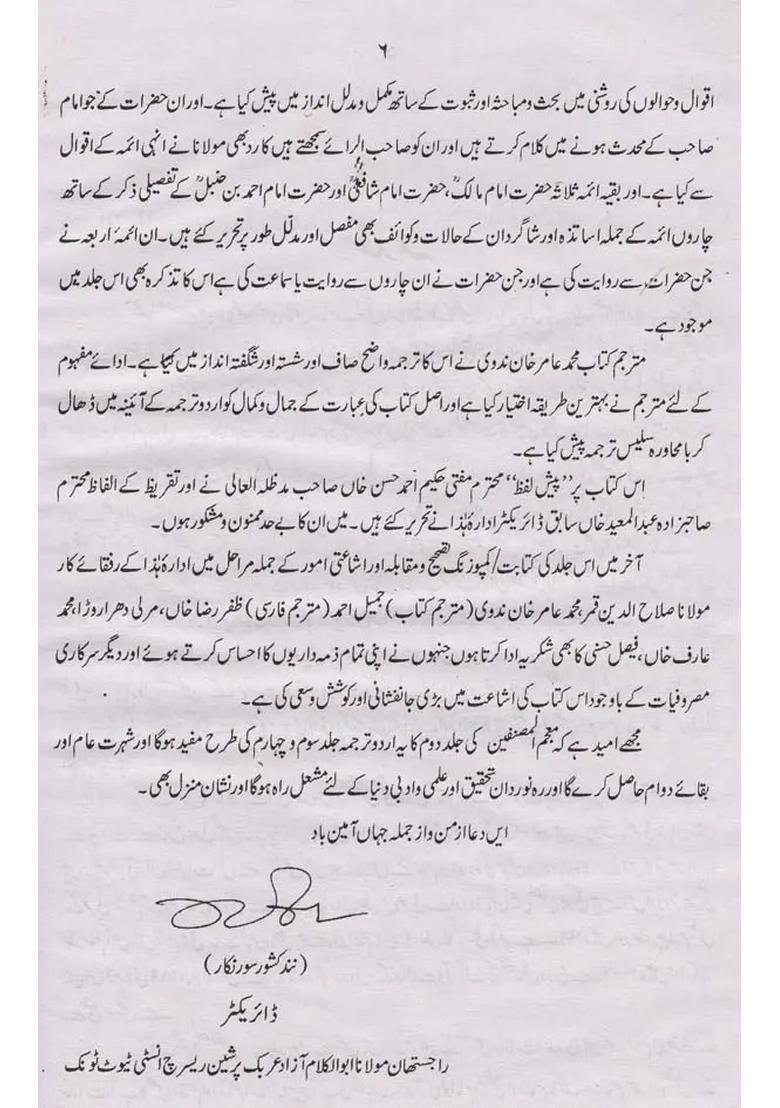 ۶
اقوال وحوالوں کی روشنی میں بحث ومباحثہ اور ثبوت کے ساتھ مکمل ومدلل انداز میں پیش کیا ہے۔ اور ان حضرات کے جو امام
صاحب کے محدث ہونے میں کلام کرتے ہیں اور ان کو صاحب الرائے سمجھتے ہیں کا رد بھی مولانا نے انہی ائمہ کے اقوال
سے کیا ہے۔ اور بقیہ ائمہ ثلاثہ حضرت امام مالکؒ، حضرت امام شافعیؒ اور حضرت امام احمد بن حنبلؒ کے تفصیلی ذکر کے ساتھ
چاروں ائمہ کے جملہ اساتذہ اور شاگردان کے حالات وکوائف بھی مفصل اور مدلّل طور پر تحریر کئے ہیں۔ ان ائمۂ اربعہ نے
جن حضرات سے روایت کی ہے اور جن حضرات نے ان چاروں سے روایت یا سماعت کی ہے اس کا تذکرہ بھی اس جلد میں
موجود ہے۔
مترجم کتاب محمد عامر خان ندوی نے اس کا ترجمہ واضح صاف اور شستہ اور شگفتہ انداز میں کیا ہے۔ ادائے مفہوم
کے لئے مترجم نے بہترین طریقہ اختیار کیا ہے اور اصل کتاب کی عبارت کے جمال وکمال کو اردو ترجمہ کے آئینہ میں ڈھال
کر بامحاورہ سلیس ترجمہ پیش کیا ہے۔
اس کتاب پر ”پیش لفظ“ محترم مفتی حکیم احمد حسن خاں صاحب مدظلہ العالی نے اور تقریظ کے الفاظ محترم
صاحبزادہ عبدالمعید خاں سابق ڈائریکٹر ادارہ ہٰذا نے تحریر کئے ہیں۔ میں ان کا بے حد ممنون و مشکور ہوں۔
آخر میں اس جلد کی کتابت/کمپوزنگ تصحیح و مقابلہ اور اشاعتی امور کے جملہ مراحل میں ادارۂ ہٰذا کے رفقائے کار
مولانا صلاح الدین قمر، محمد عامر خان ندوی (مترجم کتاب) جمیل احمد (مترجم فارسی) ظفر رضا خاں، مرلی دھر اروڑا، محمد
عارف خاں، فیصل حسنی کا بھی شکریہ ادا کرتا ہوں جنہوں نے اپنی تمام ذمہ داریوں کا احساس کرتے ہوئے اور دیگر سرکاری
مصروفیات کے باوجود اس کتاب کی اشاعت میں بڑی جانفشانی اور کوشش وسعی کی ہے۔
مجھے امید ہے کہ معجم المصنفین کی جلد دوم کا یہ اردو ترجمہ جلد سوم و چہارم کی طرح مفید ہوگا اور شہرت عام اور
بقائے دوام حاصل کرے گا اور رہ نوردان تحقیق اور علمی وادبی دنیا کے لئے مشعل راہ ہوگا اور نشان منزل بھی۔
ایں دعا از من و از جملہ جہاں آمین باد
(نند کشور سورنکار)
ڈائریکٹر
راجستھان مولانا ابوالکلام آزاد عربک پرشین ریسرچ انسٹی ٹیوٹ ٹونک